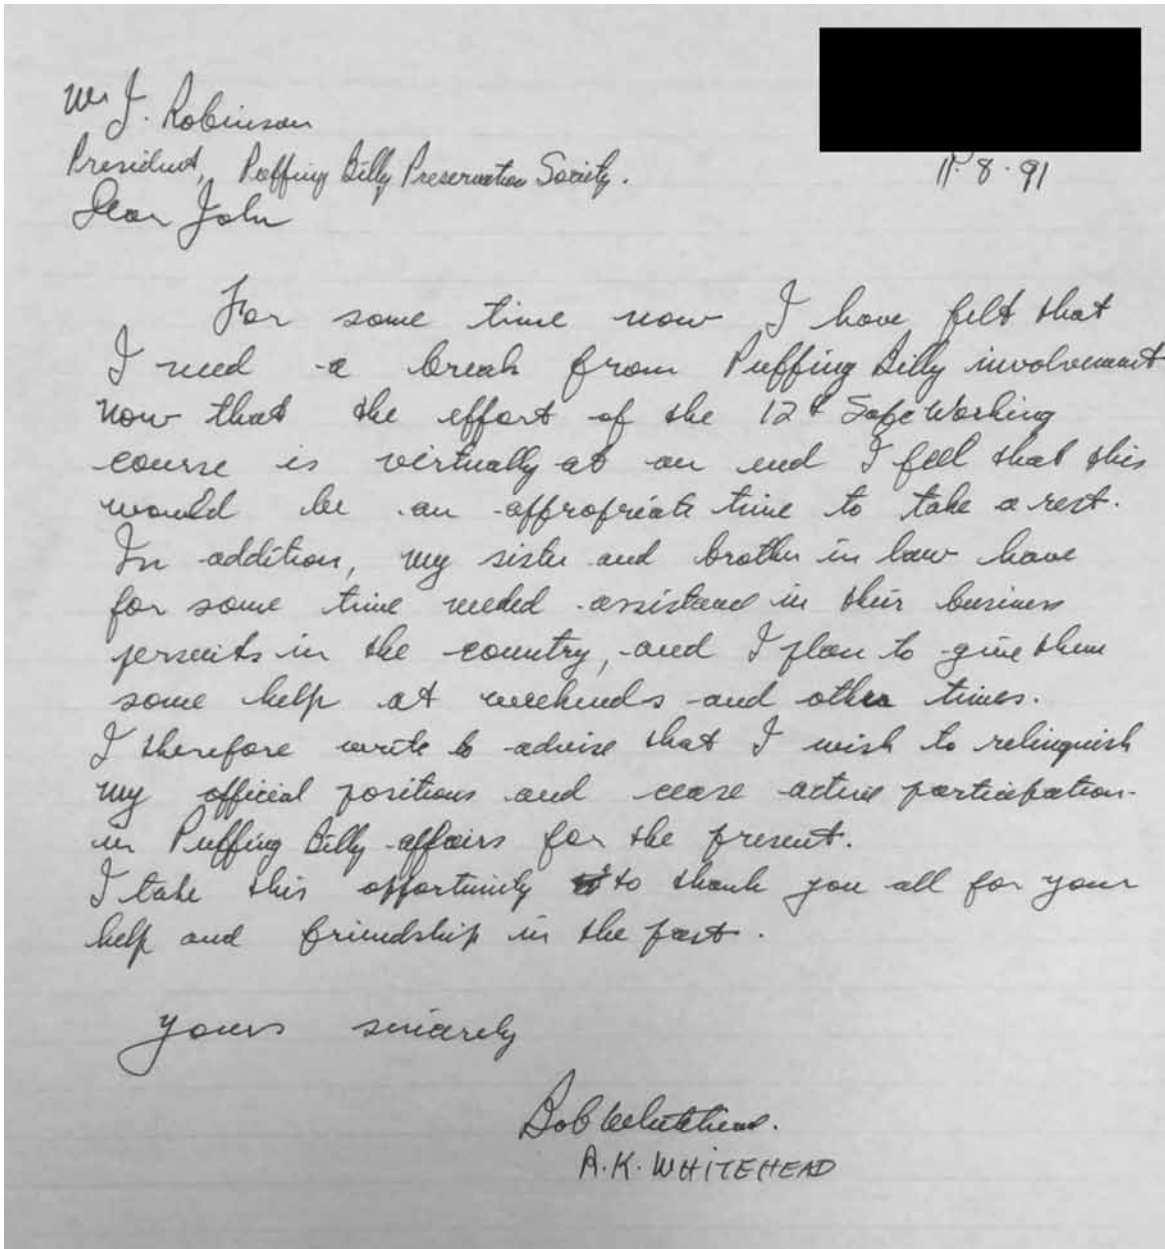 Mr J. Robinson
President, Puffing Billy Preservation Society.
11.8.91
Dear John
For some time now I have felt that
I need a break from Puffing Billy involvement
now that the effort of the 12th Safe Working
course is virtually at an end I feel that this
would be an appropriate time to take a rest.
In addition, my sister and brother in law have
for some time needed assistance in their business
persuits in the country, and I plan to give them
some help at weekends and other times.
I therefore write to advise that I wish to relinquish
my official positions and cease active participation
in Puffing Billy affairs for the present.
I take this opportunity to thank you all for your
help and friendship in the past.
Yours sincerely
Bob Whitehead.
A.K. WHITEHEAD